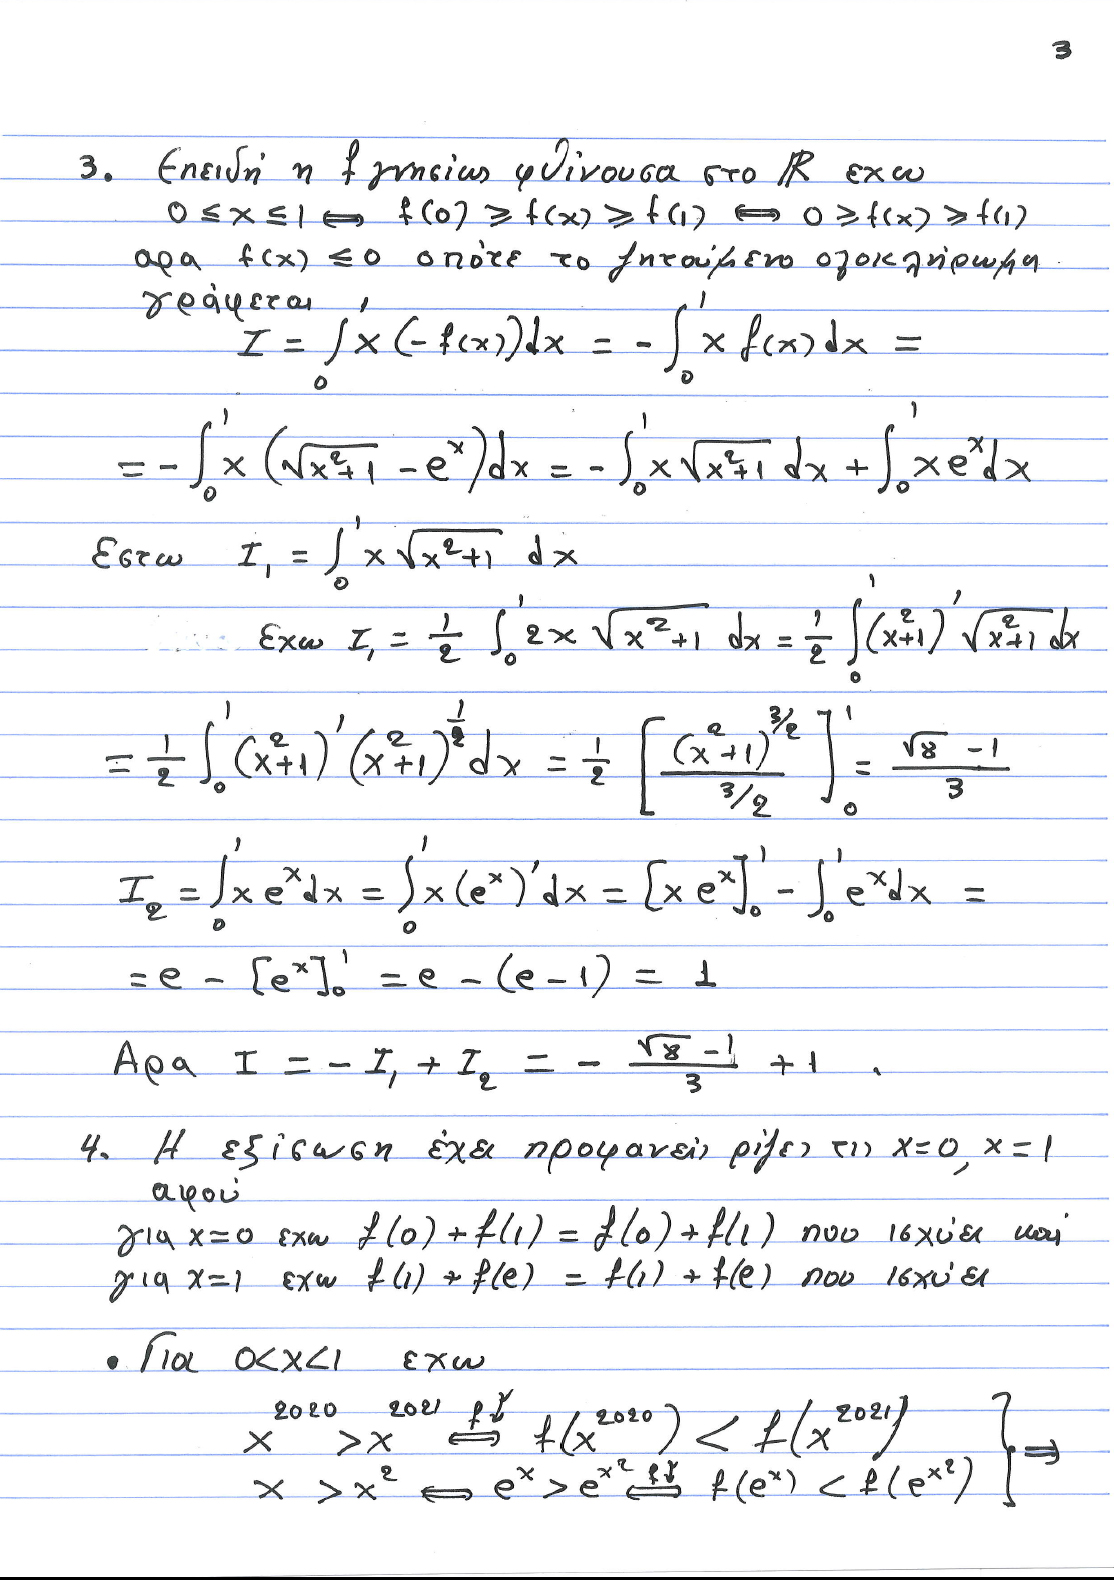 3
3. Επειδή η f γνησίως φθίνουσα στο ℝ εχω
0 ≤ x ≤ 1 ⟺ f(0) ≥ f(x) ≥ f(1) ⟺ 0 ≥ f(x) ≥ f(1)
αρα f(x) ≤ 0 οπότε το ζητούμενο ολοκλήρωμα
γράφεται
I = ∫₀¹ x (-f(x))dx = -∫₀¹ x f(x)dx =
= -∫₀¹ x (√(x²+1) - eˣ)dx = -∫₀¹ x √(x²+1) dx + ∫₀¹ x eˣdx
Εστω I₁ = ∫₀¹ x √(x²+1) dx
Εχω I₁ = 1/2 ∫₀¹ 2x √(x²+1) dx = 1/2 ∫₀¹ (x²+1)' √(x²+1) dx
= 1/2 ∫₀¹ (x²+1)' (x²+1)^(1/2) dx = 1/2 [(x²+1)^(3/2) / (3/2)]₀¹ = (√8 - 1)/3
I₂ = ∫₀¹ x eˣdx = ∫₀¹ x (eˣ)' dx = [x eˣ]₀¹ - ∫₀¹ eˣdx =
= e - [eˣ]₀¹ = e - (e-1) = 1
Αρα I = -I₁ + I₂ = - (√8 - 1)/3 + 1 .
4. Η εξίσωση έχει προφανείς ρίζες τις x=0, x=1
αφού
για x=0 εχω f(0) + f(1) = f(0) + f(1) που ισχύει καί
για x=1 εχω f(1) + f(e) = f(1) + f(e) που ισχύει
• Για 0<x<1 εχω
x²⁰²⁰ > x²⁰²¹ f↓⟺ f(x²⁰²⁰) < f(x²⁰²¹)
x > x² ⟺ eˣ > e^(x²) f↓⟺ f(eˣ) < f(e^(x²)) ] ⟹